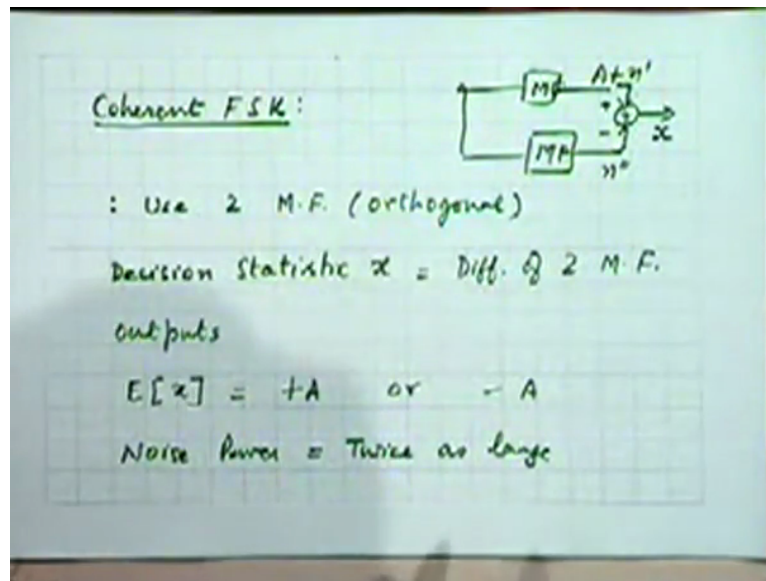 Coherent FSK:
MF
A+n'
+
+
-
x
MF
n"
: Use 2 M.F. (orthogonal)
Decision Statistic x = Diff. of 2 M.F.
outputs
E[x] = +A or - A
Noise Power = Twice as large